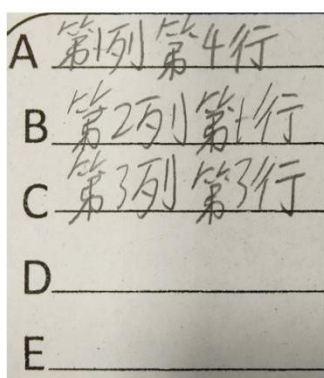 A 第1列 第4行
B 第2列 第1行
C 第3列 第3行
D
E